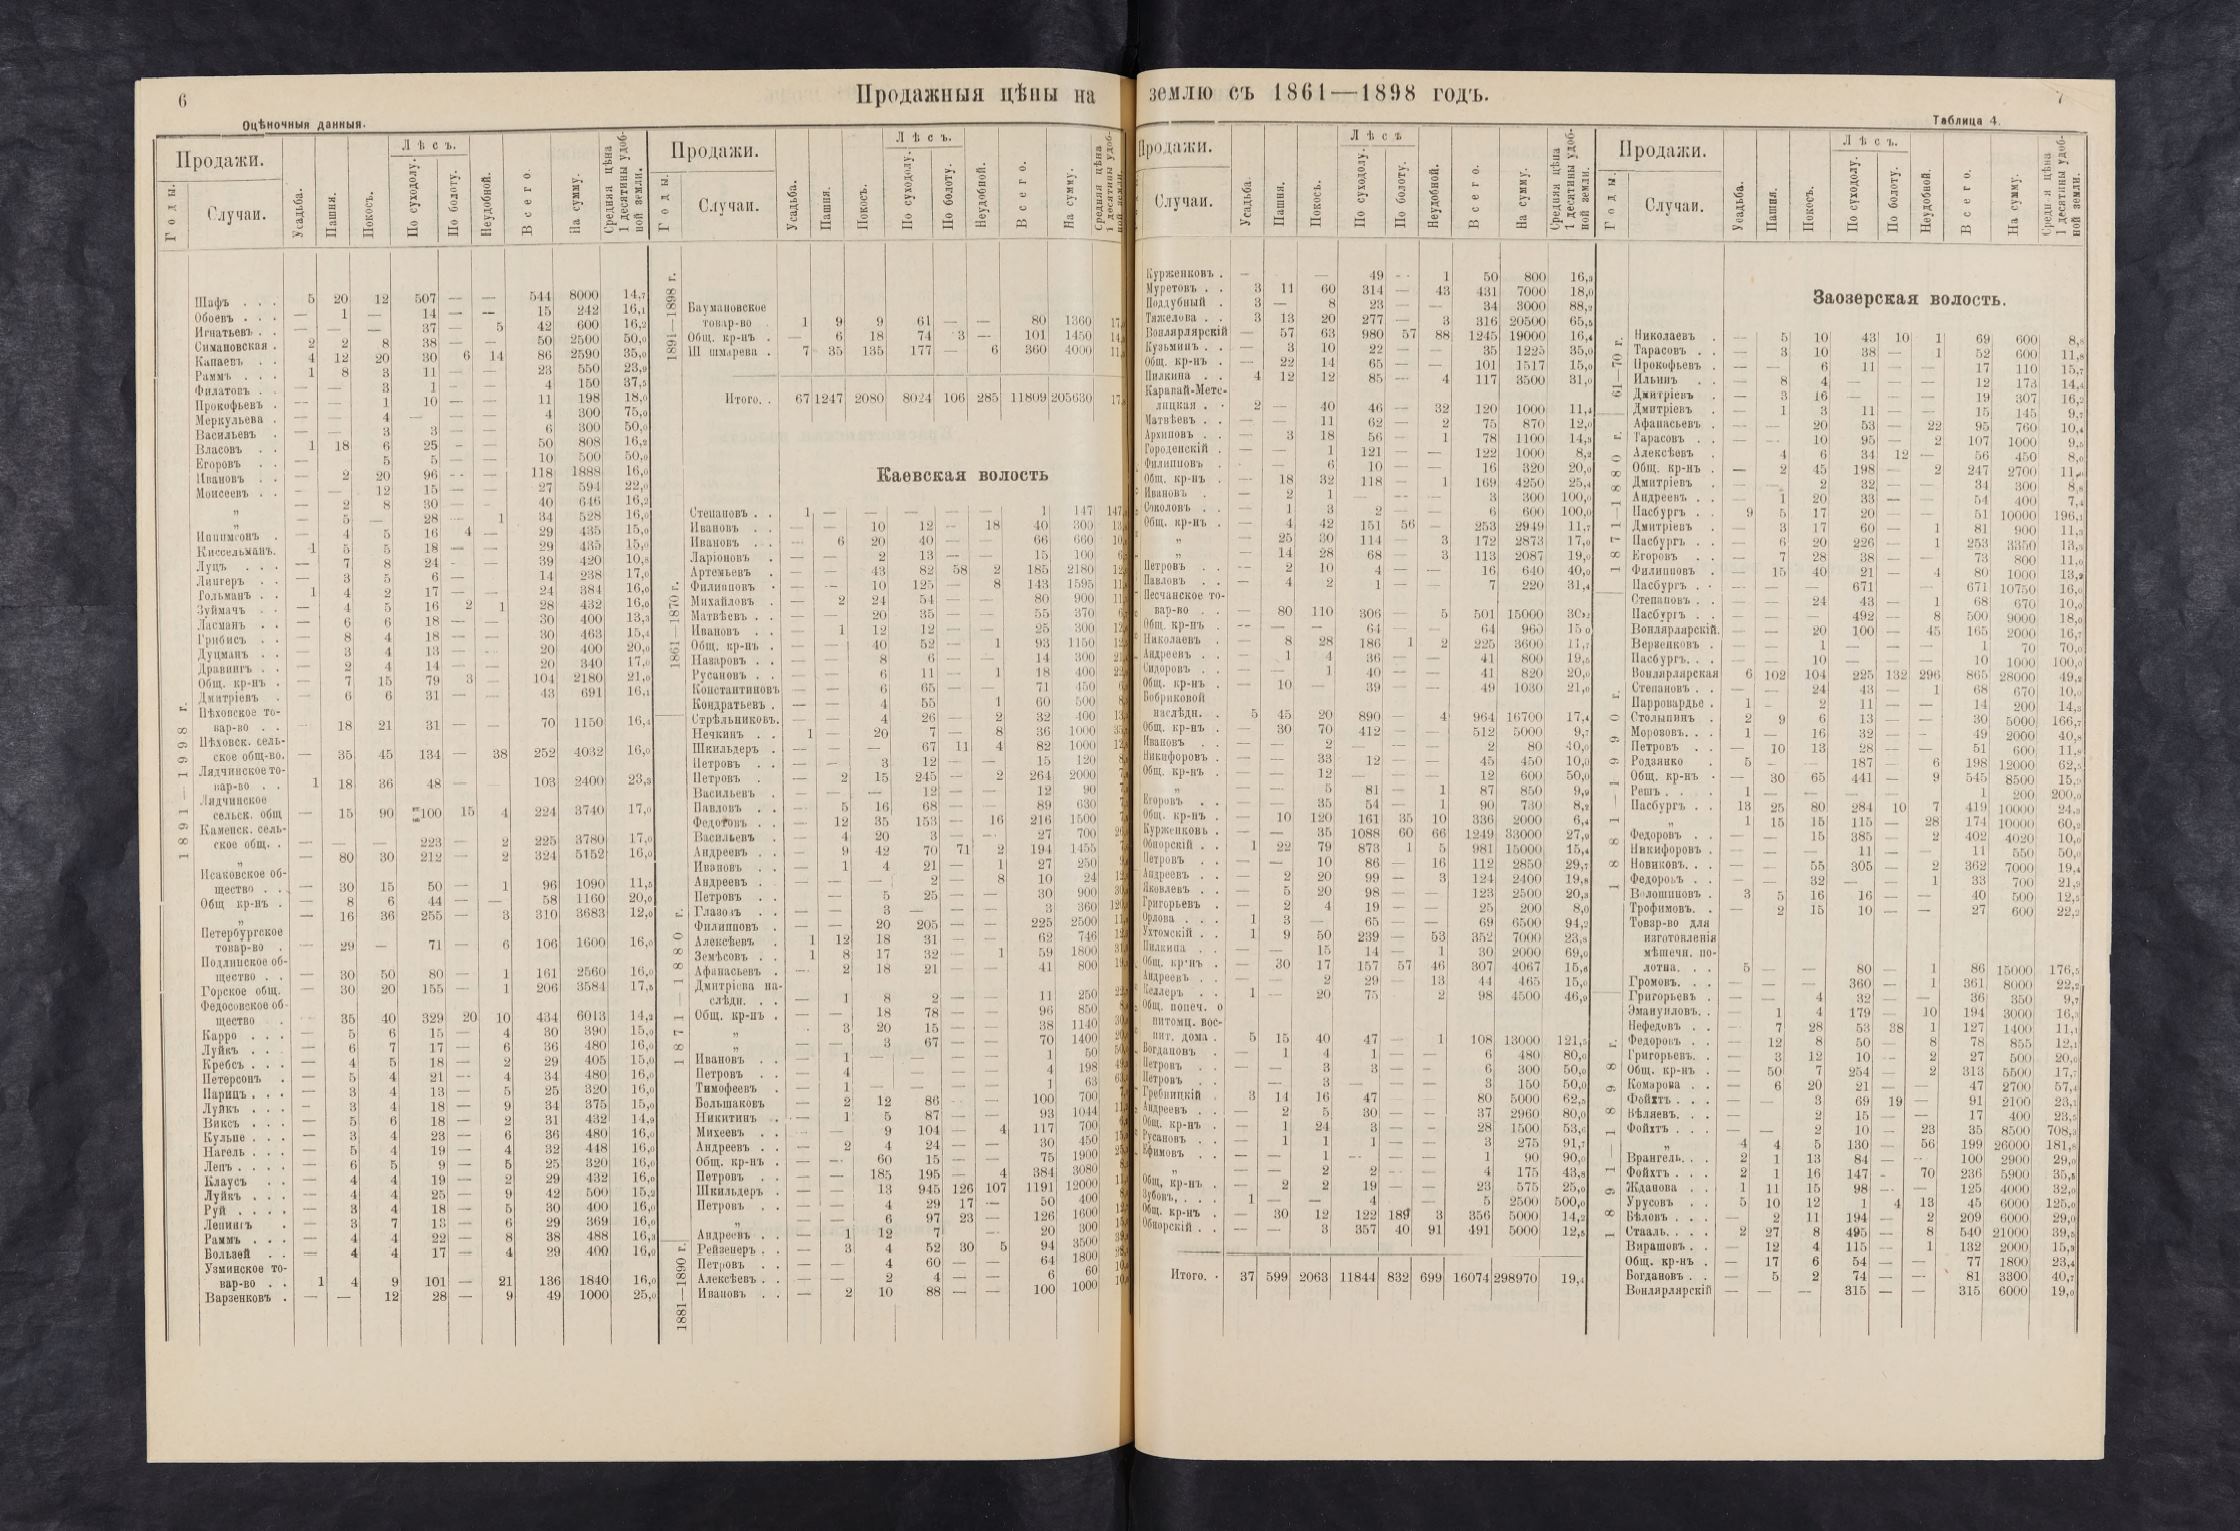 6
Продажныя цѣны на
Оцѣночныя данныя.
Продажи.
Годы.
Случаи.
Усадьба.
Пашня.
Покосъ.
Лѣсъ.
По суходолу.
По болоту.
Неудобной.
Всего.
На сумму.
Средняя цѣна 1 десятины удобной земли.
1891—1898 г.
Шафъ . . . 5 20 12 507 — — 544 8000 14,7
Обоевъ . . . — 1 — 14 — — 15 242 16,1
Игнатьевъ . . — — — 37 — 5 42 600 16,2
Симановская . 2 2 8 38 — — 50 2500 50,0
Канаевъ . . 4 12 20 30 6 14 86 2590 35,0
Раммъ . . . 1 8 3 11 — — 23 550 23,9
Филатовъ . . — — 3 1 — — 4 150 37,5
Прокофьевъ . — — 1 10 — — 11 198 18,0
Меркульева . — — 4 — — — 4 300 75,0
Васильевъ . — — 3 3 — — 6 300 50,0
Власовъ . . 1 18 6 25 — — 50 808 16,2
Егоровъ . . — — 5 5 — — 10 500 50,0
Ивановъ . . — 2 20 96 — — 118 1888 16,0
Моисеевъ . . — — 12 15 — — 27 594 22,0
„ — 2 8 30 — — 40 646 16,2
„ — 5 — 28 — 1 34 528 16,0
— 4 5 16 4 — 29 435 15,0
Киссельманъ. 1 5 5 18 — — 29 435 15,0
Луцъ . . . — 7 8 24 — — 39 420 10,8
Лингеръ . . — 3 5 6 — — 14 238 17,0
Гольманъ . . 1 4 2 17 — — 24 384 16,0
Зуймачъ . . — 4 5 16 2 1 28 432 16,0
Ласманъ . . — 6 6 18 — — 30 400 13,3
Грибисъ . . — 8 4 18 — — 30 463 15,4
Дуцманъ . . — 3 4 13 — — 20 400 20,0
Дравингъ . . — 2 4 14 — — 20 340 17,0
Общ. кр-нъ . — 7 15 79 3 — 104 2180 21,0
Дмитріевъ . — 6 6 31 — — 43 691 16,1
Пѣховское то-
вар-во . . — 18 21 31 — — 70 1150 16,4
Пѣховск. сель-
ское общ-во. — 35 45 134 — 38 252 4032 16,0
Лядчинское то-
вар-во . . 1 18 36 48 — 103 2400 23,3
Лядчинское
сельск. общ — 15 90 100 15 4 224 3740 17,0
Каменск. сель-
ское общ. . — — — 223 — 2 225 3780 17,0
„ — 80 30 212 — 2 324 5152 16,0
Исаковское об-
щество . . — 30 15 50 — 1 96 1090 11,5
Общ кр-нъ . — 8 6 44 — — 58 1160 20,0
„ — 16 36 255 — 3 310 3683 12,0
Петербургское
товар-во . — 29 — 71 — 6 106 1600 16,0
Подлинское об-
щество . . — 30 50 80 — 1 161 2560 16,0
Горское общ. — 30 20 155 — 1 206 3584 17,5
Федосовское об-
щество . — 35 40 329 20 10 434 6013 14,2
Карро . . . — 5 6 15 — 4 30 390 15,0
Луйкъ . . . — 6 7 17 — 6 36 480 16,0
Кребсъ . . . — 4 5 18 — 2 29 405 15,0
Петерсонъ . — 5 4 21 — 4 34 480 16,0
Парицъ . . . — 3 4 13 — 5 25 320 16,0
Луйкъ . . . — 3 4 18 — 9 34 375 15,0
Виксъ . . . — 5 6 18 — 2 31 432 14,9
Кульпе . . . — 3 4 23 — 6 36 480 16,0
Нагель . . . — 5 4 19 — 4 32 448 16,0
Лепъ . . . . — 6 5 9 — 5 25 320 16,0
Клаусъ . . — 4 4 19 — 2 29 432 16,0
Луйкъ . . . — 4 4 25 — 9 42 500 15,2
Руй . . . . — 3 4 18 — 5 30 400 16,0
Ленингъ . — 3 7 13 — 6 29 369 16,0
Раммъ . . . — 4 4 22 — 8 38 488 16,3
Вользей . . — 4 4 17 — 4 29 400 16,0
Узминское то-
вар-во . . 1 4 9 101 — 21 136 1840 16,0
Варзенковъ . — — 12 28 — 9 49 1000 25,0
Продажи.
Годы.
Случаи.
Усадьба.
Пашня.
Покосъ.
Лѣсъ.
По суходолу.
По болоту.
Неудобной.
Всего.
На сумму.
Средняя цѣна
1891—1898 г.
Баумановское
товар-во . 1 9 9 61 — — 80 1360
Общ. кр-нъ . — 6 18 74 3 — 101 1450
7 35 135 177 — 6 360 4000
Итого. . 67 1247 2080 8024 106 285 11809 205630
Каевская волость
1861—1870 г.
Степановъ . . 1 — — — — — 1 147 147
Ивановъ . . — — 10 12 — 18 40 300
Ивановъ . . — 6 20 40 — — 66 660
Ларіоновъ . — — 2 13 — — 15 100
Артемьевъ . — — 43 82 58 2 185 2180
Филипповъ . — — 10 125 — 8 143 1595
Михайловъ . — 2 24 54 — — 80 900
Матвѣевъ . . — — 20 35 — — 55 370
Ивановъ . . — 1 12 12 — — 25 300
Общ. кр-нъ . — — 40 52 — 1 93 1150
Назаровъ . . — — 8 6 — — 14 300
Русановъ . . — — 6 11 — 1 18 400
Константиновъ — — 6 65 — — 71 450
Кондратьевъ . — — 4 55 1 60 500
1871—1880 г.
Стрѣльниковъ. — — 4 26 — 2 32 400
Нечкинъ . . 1 — 20 7 — 8 36 1000
Шкильдеръ . — — — 67 11 4 82 1000
Петровъ . . — — 3 12 — — 15 120
Петровъ . — 2 15 245 — 2 264 2000
Васильевъ . — — — 12 — — 12 90
Павловъ . . — 5 16 68 — — 89 630
Федотовъ . . — 12 35 153 — 16 216 1500
Васильевъ . — 4 20 3 — — 27 700
Андреевъ . . — 9 42 70 71 2 194 1455
Ивановъ . . — 1 4 21 — 1 27 250
Андреевъ . — — — 2 — 8 10 24
Петровъ . . — — 5 25 — — 30 900
Глазовъ . . — — 3 — — — 3 360
Филипповъ . — — 20 205 — — 225 2500
Алексѣевъ . 1 12 18 31 — — 62 746
Земѣсовъ . . 1 8 17 32 — 1 59 1800
Афанасьевъ . — 2 18 21 — — 41 800
Дмитріева на-
слѣдн. . . — 1 8 2 — 11 250
Общ. кр-нъ . — — 18 78 — — 96 850
„ 3 20 15 — — 38 1140
„ — — 3 67 — 70 1400
Ивановъ . . — 1 — — — — 1 50
Петровъ . . — 4 — — — — 4 198
Тимофеевъ . — 1 — — — — 1 63
Большаковъ — 2 12 86 — — 100 700
Никитинъ . — 1 5 87 — — 93 1044
Михеевъ . . — — 9 104 — 4 117 700
Андреевъ . . — 2 4 24 — — 30 450
Общ. кр-нъ . — — 60 15 — — 75 1900
Петровъ . . — — 185 195 — 4 384 3080
Шкильдеръ . — — 13 945 126 107 1191 12000
Петровъ . . — — 4 29 17 — 50 400
„ — — 6 97 23 — 126 1600
Андреевъ . . — 1 12 7 — 20 300
1881—1890 г.
Рейзенеръ . . — 3 4 52 30 5 94 3500
Петровъ . . — — 4 60 — — 64 1800
Алексѣевъ . . — — 2 4 — — 6 60
Ивановъ . . — 2 10 88 — — 100 1000
землю съ 1861—1898 годъ.
7
Таблица 4.
Продажи.
Случаи.
Усадьба.
Пашня.
Покосъ.
Лѣсъ
По суходолу.
По болоту.
Неудобной.
Всего.
На сумму.
Средняя цѣна 1 десятины удобной земли.
Курженковъ . — — 49 — 1 50 800 16,3
Муретовъ . . 3 11 60 314 — 43 431 7000 18,0
Поддубный . 3 — 8 23 — — 34 3000 88,2
Тяжелова . . 3 13 20 277 — 3 316 20500 65,5
Вонлярлярскій — 57 63 980 57 88 1245 19000 16,4
Кузьминъ . . — 3 10 22 — — 35 1225 35,0
Общ. кр-нъ . — 22 14 65 — — 101 1517 15,0
Пилкина . . 4 12 12 85 — 4 117 3500 31,0
Карапай-Мете-
лицкая . . 2 — 40 46 — 32 120 1000 11,4
Матвѣевъ . . — — 11 62 — 2 75 870 12,0
Архиповъ . . — 3 18 56 — 1 78 1100 14,3
Городенскій . — — 1 121 — — 122 1000 8,2
Филипповъ . — 6 10 — — 16 320 20,0
Общ. кр-нъ . — 18 32 118 — 1 169 4250 25,4
Ивановъ . — 2 1 — — — 3 300 100,0
Соколовъ . . — 1 3 2 — — 6 600 100,0
Общ. кр-нъ . — 4 42 151 56 — 253 2949 11,7
„ — 25 30 114 — 3 172 2873 17,0
„ — 14 28 68 — 3 113 2087 19,0
Петровъ . . — 2 10 4 — — 16 640 40,0
Павловъ . . — 4 2 1 — — 7 220 31,4
Песчанское то-
вар-во . . — 80 110 306 — 5 501 15000
Общ. кр-нъ . — — — 64 — — 64 960 15,0
Николаевъ . — 8 28 186 1 2 225 3600 11,7
Андреевъ . . — 1 4 36 — — 41 800 19,5
Сидоровъ . . — — 1 40 — — 41 820 20,0
Общ. кр-нъ . — 10 — 39 — — 49 1030 21,0
Бобриковой
наслѣдн. . 5 45 20 890 — 4 964 16700 17,4
Общ. кр-нъ . — 30 70 412 — — 512 5000 9,7
Ивановъ . — — 2 — — — 2 80 40,0
Никифоровъ . — — 33 12 — — 45 450 10,0
Общ. кр-нъ . — — 12 — — — 12 600 50,0
„ — — 5 81 — 1 87 850 9,9
Егоровъ . . — — 35 54 — 1 90 730 8,2
Общ. кр-нъ . — 10 120 161 35 10 336 2000 6,4
Курженковъ . — — 35 1088 60 66 1249 33000 27,9
Обнорскій . . 1 22 79 873 1 5 981 15000 15,4
Петровъ . . — — 10 86 — 16 112 2850 29,7
Андреевъ . . — 2 20 99 — 3 124 2400 19,8
Яковлевъ . . — 5 20 98 — — 123 2500 20,3
Григорьевъ . — 2 4 19 — — 25 200 8,0
Орлова . . . 1 3 — 65 — — 69 6500 94,2
Ухтомскій . . 1 9 50 239 — 53 352 7000 23,3
Пилкина . . — — 15 14 — 1 30 2000 69,0
Общ. кр-нъ . — 30 17 157 57 46 307 4067 15,6
Андреевъ . . — — 2 29 — 13 44 465 15,0
Келлеръ . . 1 — 20 75 2 98 4500 46,9
Общ. попеч. о
питомц. вос-
пит. дома . 5 15 40 47 — 1 108 13000 121,5
Богдановъ . — 1 4 1 — — 6 480 80,0
Петровъ . . — — 3 3 — — 6 300 50,0
Петровъ . . — — 3 — — — 3 150 50,0
Гребницкій . 3 14 16 47 80 5000 62,5
Андреевъ . . — 2 5 30 — — 37 2960 80,0
Общ. кр-нъ . — 1 24 3 — — 28 1500 53,6
Русановъ . . — 1 1 1 — — 3 275 91,7
Ефимовъ . . — — 1 — — — 1 90 90,0
„ — — 2 2 — — 4 175 43,8
Общ. кр-нъ . — 2 2 19 — — 23 575 25,0
Зубовъ. . . . 1 — — 4 — 5 2500 500,0
Общ. кр-нъ . — 30 12 122 189 3 356 5000 14,2
Обнорскій . . — — 3 357 40 91 491 5000 12,5
Итого. . 37 599 2063 11844 832 699 16074 298970 19,4
Продажи.
Годы.
Случаи.
Усадьба.
Пашня.
Покосъ.
Лѣсъ.
По суходолу.
По болоту.
Неудобной.
Всего.
На сумму.
Средняя цѣна 1 десятины удобной земли.
Заозерская волость.
61—70 г.
Николаевъ . — 5 10 43 10 1 69 600 8,8
Тарасовъ . . — 3 10 38 — 1 52 600 11,8
Прокофьевъ . — — 6 11 — — 17 110 15,7
Ильинъ . . — 8 4 — — — 12 173 14,4
Дмитріевъ . — 3 16 — — — 19 307 16,2
1871—1880 г.
Дмитріевъ . — 1 3 11 — — 15 145 9,7
Афанасьевъ . — — 20 53 — 22 95 760 10,4
Тарасовъ . . — — 10 95 — 2 107 1000 9,5
Алексѣевъ . 4 6 34 12 — 56 450 8,0
Общ. кр-нъ . — 2 45 198 — 2 247 2700 11,0
Дмитріевъ . — — 2 32 — — 34 300 8,8
Андреевъ . . — 1 20 33 — — 54 400 7,4
Пасбургъ . . 9 5 17 20 — — 51 10000 196,1
Дмитріевъ . — 3 17 60 — 1 81 900 11,3
Пасбургъ . . — 6 20 226 — 1 253 3350 13,3
Егоровъ . . — 7 28 38 — — 73 800 11,0
Филипповъ . — 15 40 21 — 4 80 1000 13,2
Пасбургъ . . — — 671 — — 671 10750 16,0
1881—1990 г.
Степановъ . . — — 24 43 — 1 68 670 10,0
Пасбургъ . . — — — 492 — 8 500 9000 18,0
Вонлярлярскій. — — 20 100 — 45 165 2000 16,7
Верзенковъ . — — 1 — — — 1 70 70,0
Пасбургъ. . . — — 10 — — — 10 1000 100,0
Вонлярлярская 6 102 104 225 132 296 865 28000 49,2
Степановъ . . — — 24 43 — 1 68 670 10,0
Парровардье . 1 — 2 11 — — 14 200 14,3
Столыпинъ . 2 9 6 13 — — 30 5000 166,7
Морозовъ. . . 1 — 16 32 — — 49 2000 40,8
Петровъ . . — 10 13 28 — — 51 600 11,8
Родзянко . 5 — — 187 — 6 198 12000 62,5
Общ. кр-нъ . — 30 65 441 — 9 545 8500 15,9
Решъ . . . 1 — — — — — 1 200 200,0
Пасбургъ . . 13 25 80 284 10 7 419 10000 24,3
„ 1 15 15 115 — 28 174 10000 60,2
Федоровъ . . — — 15 385 — 2 402 4020 10,0
Никифоровъ . — — 11 — — 11 550 50,0
Новиковъ. . . — — 55 305 — 2 362 7000 19,4
Федоровъ . . — — 32 — — 1 33 700 21,9
Волошиновъ . 3 5 16 16 — — 40 500 12,5
Трофимовъ. . — 2 15 10 — — 27 600 22,2
Товар-во для
изготовленія
мѣшечн. по-
лотна. . . 5 — — 80 — 1 86 15000 176,5
Громовъ. . . — — — 360 — 1 361 8000 22,2
1891—1898 г.
Григорьевъ . — — 4 32 — — 36 350 9,7
Эмануиловъ. . — 1 4 179 — 10 194 3000 16,3
Нефедовъ . . — 7 28 53 38 1 127 1400 11,1
Федоровъ . . — 12 8 50 — 8 78 855 12,1
Григорьевъ. . — 3 12 10 — 2 27 500 20,0
Общ. кр-нъ . — 50 7 254 — 2 313 5500 17,7
Комарова . . — 6 20 21 — — 47 2700 57,4
Фойхтъ . . . — — 3 69 19 — 91 2100 23,1
Бѣляевъ. . . — 2 15 — — 17 400 23,5
Фойхтъ . . . — — 2 10 — 23 35 8500 708,3
„ 4 4 5 130 — 56 199 26000 181,8
Врангель. . . 2 1 13 84 — — 100 2900 29,0
Фойхтъ . . . 2 1 16 147 — 70 236 5900 35,5
Жданова . . 1 11 15 98 — — 125 4000 32,0
Урусовъ . . 5 10 12 1 4 13 45 6000 125,0
Бѣловъ . . . — 2 11 194 — 2 209 6000 29,0
Стааль. . . . 2 27 8 495 — 8 540 21000 39,5
Вирашовъ . . — 12 4 115 — 1 132 2000 15,3
Общ. кр-нъ . — 17 6 54 — — 77 1800 23,4
Богдановъ . . — 5 2 74 — — 81 3300 40,7
Вонлярлярскій — — — 315 — — 315 6000 19,0